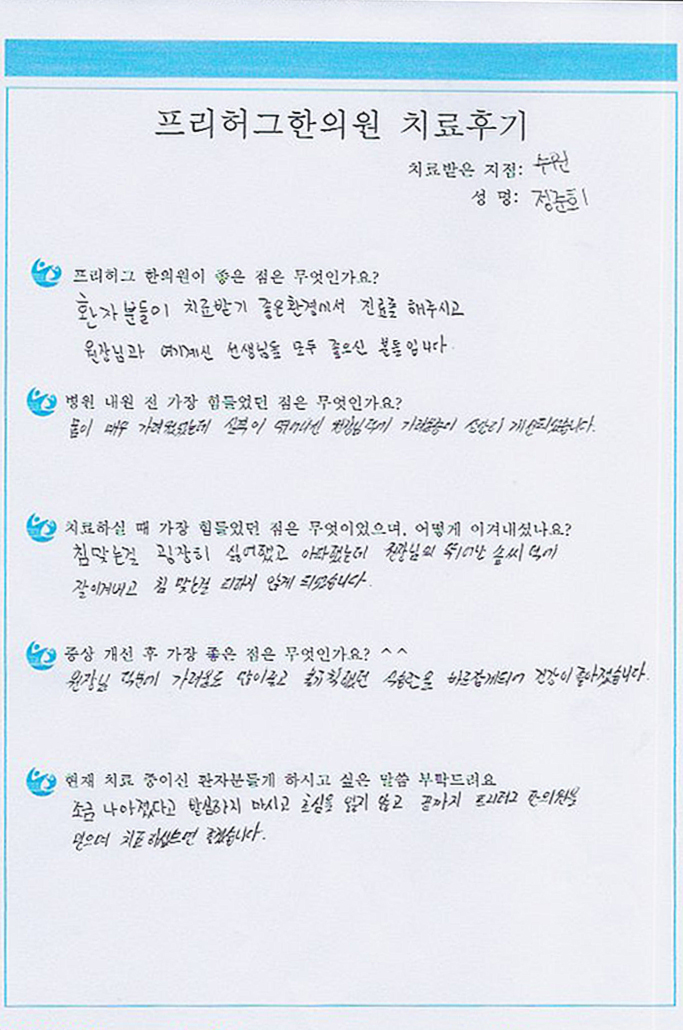 프리허그한의원 치료후기
치료받은 지점: 수원
성 명: 정준희
프리허그 한의원이 좋은 점은 무엇인가요?
환자분들이 치료받기 좋은환경에서 진료를 해주시고
원장님과 여기계신 선생님들 모두 좋으신 분들입니다.
병원 내원 전 가장 힘들었던 점은 무엇인가요?
몸이 매우 가려웠었는데 실력이 뛰어나신 원장님덕에 가려움증이 상당히 개선되었습니다.
치료하실 때 가장 힘들었던 점은 무엇이었으며, 어떻게 이겨내셨나요?
침맞는걸 굉장히 싫어했고 아파했는데 원장님의 뛰어난 솜씨 덕에
잘이겨내고 침 맞는걸 피하지 않게 되었습니다.
증상 개선 후 가장 좋은 점은 무엇인가요? ^^
원장님 덕분에 가려움도 많이줄고 불규칙했던 식습관을 바로잡게되어 건강이 좋아졌습니다.
현재 치료 중이신 환자분들게 하시고 싶은 말씀 부탁드려요
조금 나아졌다고 방심하지 마시고 초심을 잃지 않고 끝까지 프리허그 한의원을
믿으며 치료하셨으면 좋겠습니다.